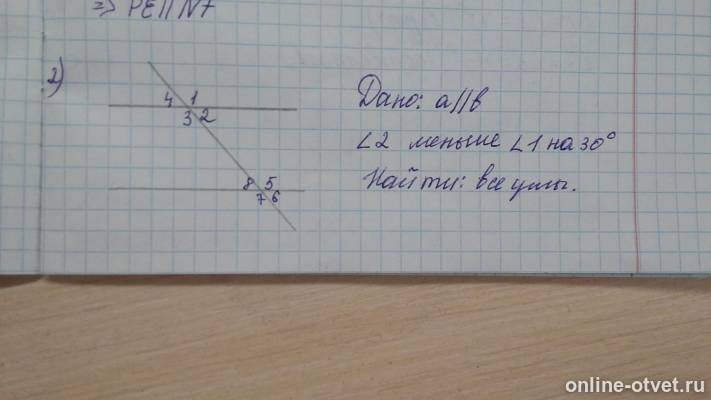 => PE||NF
2)
4 1
3 2
8 5
7 6
Дано: a||b
∠2 меньше ∠1 на 30°
Найти: все углы.
online-otvet.ru